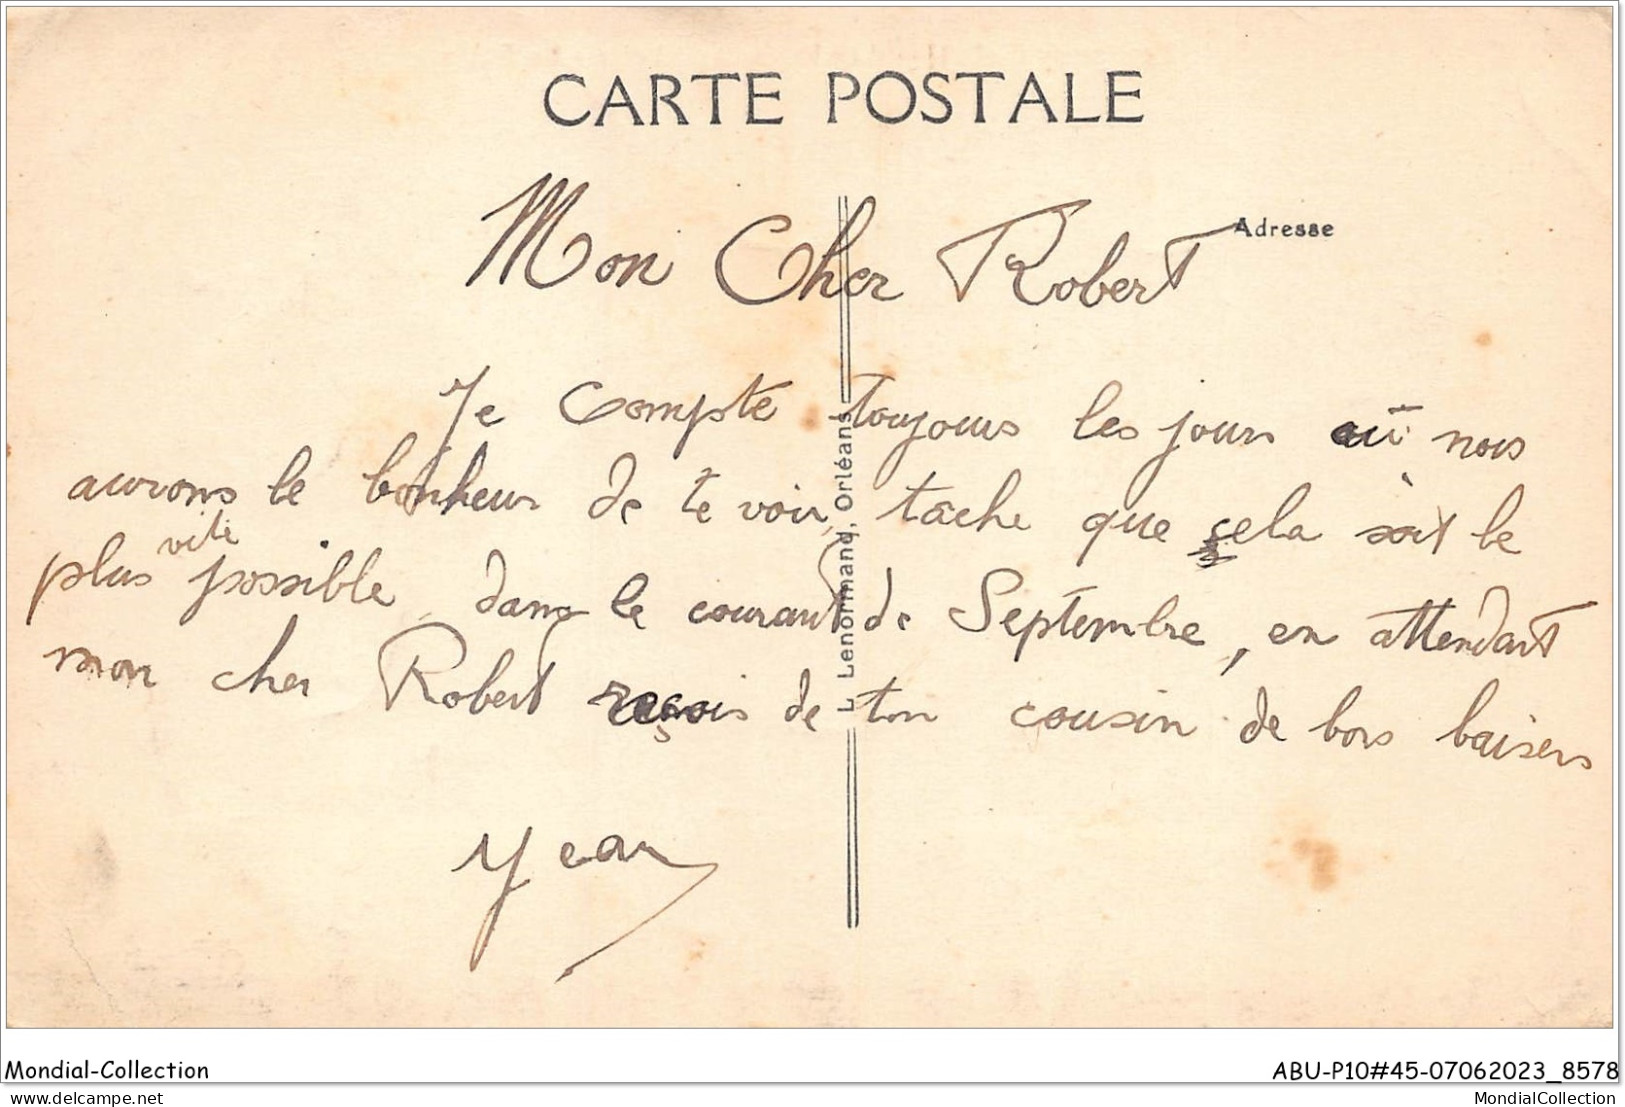 CARTE POSTALE
Adresse
Mon Cher Robert
Je compte toujours les jours où nous
aurons le bonheur de te voir, tâche que cela soit le
plus vite possible dans le courant de Septembre, en attendant
mon cher Robert reçois de ton cousin de bons baisers
Jean
L. Lenormand, Orléans
Mondial-Collection
ABU-P10#45-07062023_8578
delcampe.net
MondialCollection